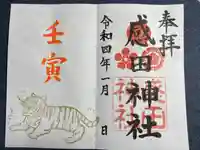 奉拝
感田神社
令和四年一月 日
壬寅